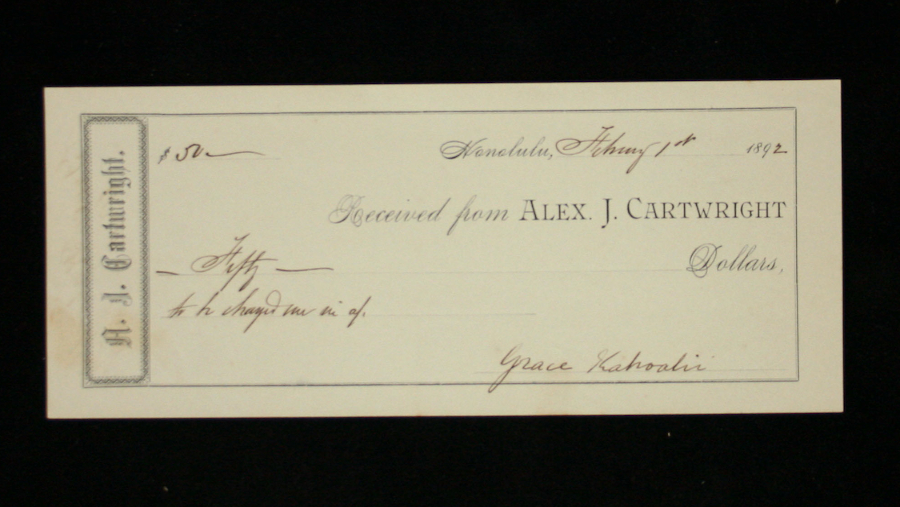 A. J. Cartwright.
$50
Honolulu, Feby 1st 1892
Received from ALEX. J. CARTWRIGHT
Fifty Dollars,
to be charged me in a/.
Grace Kahoalii